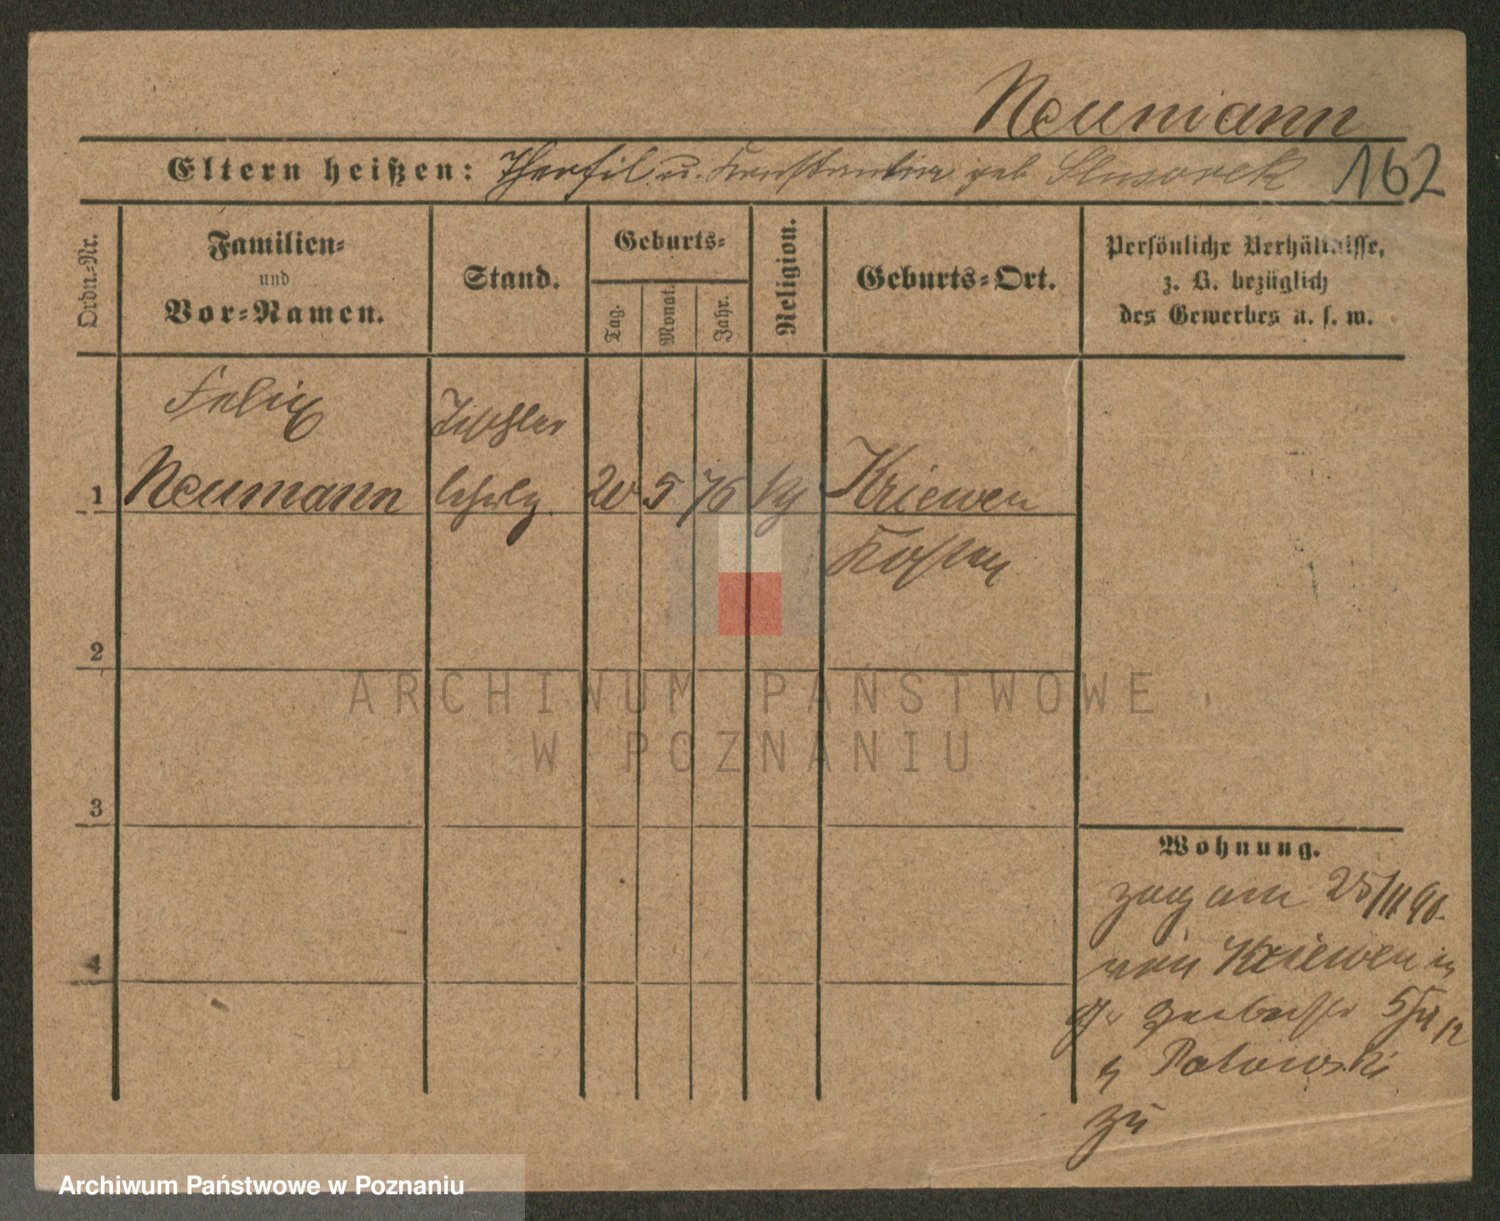 Neumann
Eltern heißen: u. Konstantia geb Slusorek 162
Ordn.-Nr.
Familien-
und
Vor-Namen.
Stand.
Geburts-
Tag.
Monat.
Jahr.
Religion.
Geburts-Ort.
Persönliche Verhältnisse,
z. B. bezüglich
des Gewerbes u. s. w.
Felix
Tischler
1 Neumann 20 5 76 Kriewen
Kosten
2
ARCHIWUM PAŃSTWOWE
W POZNANIU
3
Wohnung.
zog am 25/11 90
von Kriewen
4
Gr Gerberstr
Patowski
zu
Archiwum Państwowe w Poznaniu